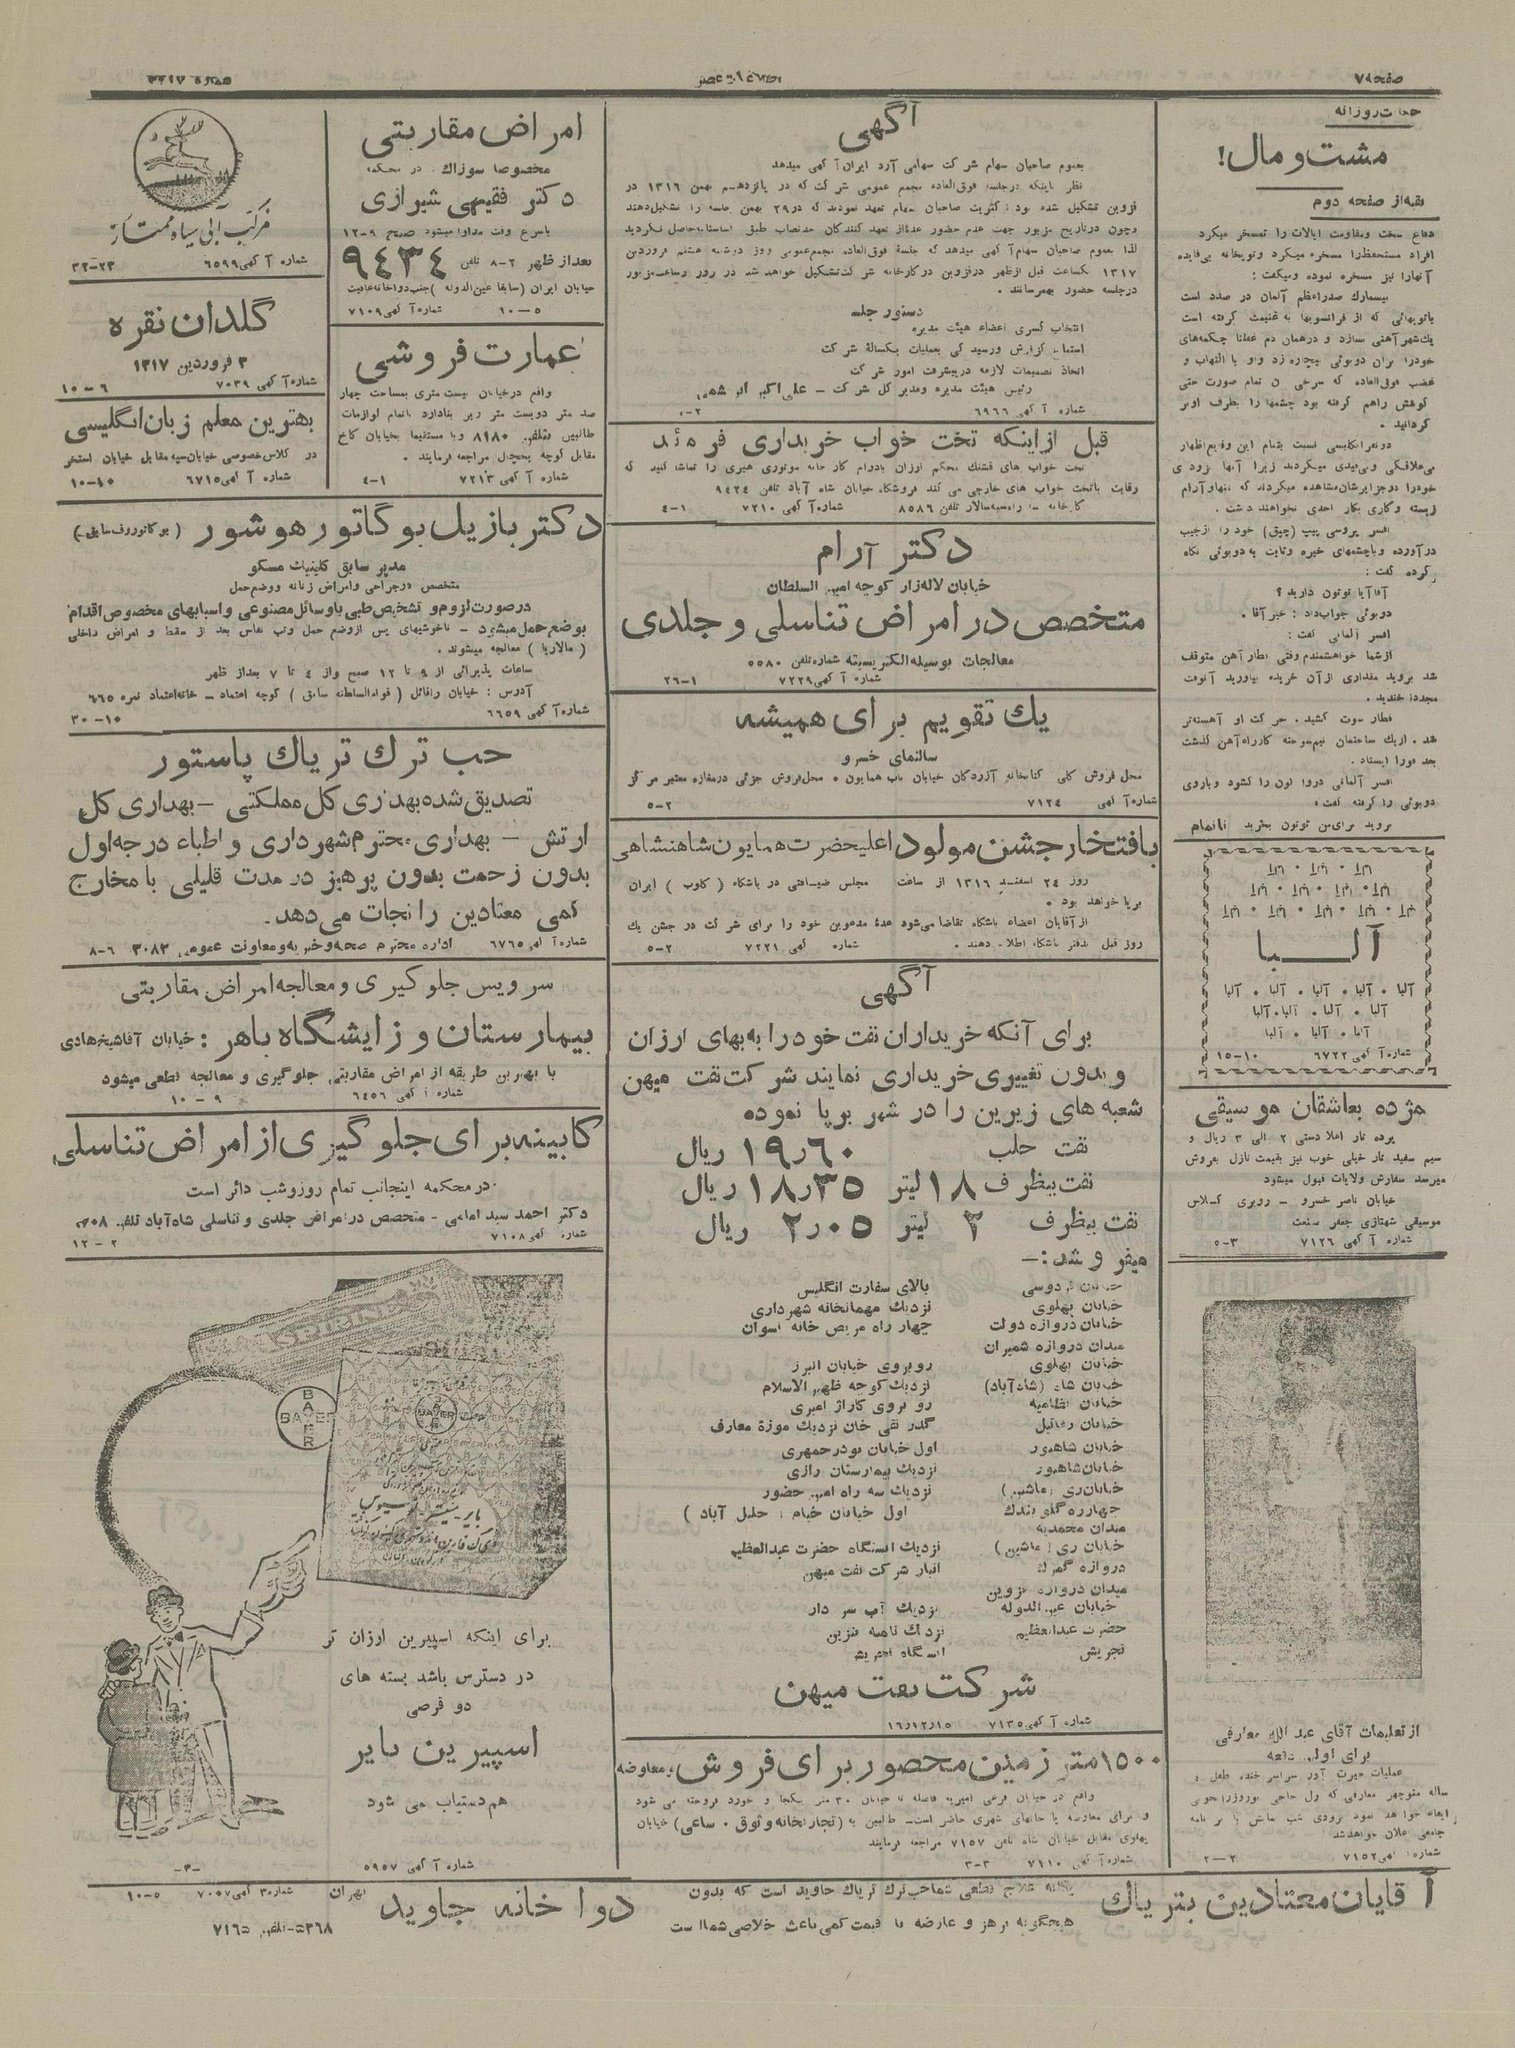 صفحه ۷
اطلاعات عصر
شماره
حکایت روزانه
مشت و مال!
بقیه از صفحه دوم
دفاع سخت و مقاومت ایالات را تمسخر میکرد
افراد مستحفظ را مسخره میکرد و توپخانه بی‌فایده
آنها را نیز مسخره نموده و میگفت:
بیسمارک صدراعظم آلمان در صدد است
با توپهائی که از فرانسویها به غنیمت گرفته است
یک شهر آهنی بسازد و در همان دم
غضب فوق‌العاده که سرخی آن تمام صورت حتی
گوشش را هم گرفته بود چشمها را بطرف او بر
گردانید.
افسر پروسی پیپ (چپق) خود را از جیب
در آورده و با چشمهای خیره و ثابت به دوبوئی نگاه
کرده گفت:
آقا آیا توتون دارید؟
دوبوئی جواب داد: خیر آقا.
افسر آلمانی گفت:
از شما خواهشمندم وقتی قطار آهن متوقف
شد بروید مقداری از آن خریده بیاورید آنوقت
مجددا خندید.
قطار سوت کشید. حرکت او آهسته‌تر
شد. از یک ساختمان نیم‌سوخته کار راه آهن گذشت
بعد فورا ایستاد.
افسر آلمانی در واگون را گشود و بازوی
دوبوئی را گرفته گفت:
بروید برای من توتون بخرید ناتمام
آلبا
آلبا . آلبا . آلبا . آلبا . آلبا
آلبا . آلبا . آلبا . آلبا
آلبا . آلبا . آلبا
شماره آگهی ۶۷۲۲ ۱۰-۱۵
مژده بعاشقان موسیقی
پرده تار اعلا دستی ۲ الی ۳ ریال و
سیم سفید تار خیلی خوب نیز بقیمت نازل بفروش
میرسد سفارش ولایات قبول میشود
خیابان ناصر خسرو – روبروی کلاس
موسیقی شهنازی جعفر صنعت
شماره آگهی ۷۱۲۶ ۳-۵
از تعلیمات آقای عبدالله معارفی
برای اولین دفعه
آگهی
بعموم صاحبان سهام شرکت سهامی آرد ایران آگهی میدهد
نظر باینکه در جلسه فوق‌العاده مجمع عمومی شرکت که در پانزدهم بهمن ۱۳۱۶ در
قزوین تشکیل شده بود اکثریت صاحبان سهام تعهد نمودند که در ۲۹ بهمن جلسه را تشکیل دهند
و چون در تاریخ مزبور جهت عدم حضور عده‌ای از تعهد کنندگان حد نصاب طبق اساسنامه حاصل نگردید
لذا بعموم صاحبان سهام آگهی میدهد که جلسه فوق‌العاده مجمع عمومی روز دوشنبه هشتم فروردین
۱۳۱۷ یکساعت قبل از ظهر در قزوین در کارخانه شرکت تشکیل خواهد شد در روز و ساعت مزبور
در جلسه حضور بهمرسانند.
دستور جلسه
انتخاب کسری اعضاء هیئت مدیره
استماع گزارش و رسیدگی بعملیات یکساله شرکت
اتخاذ تصمیمات لازمه در پیشرفت امور شرکت
رئیس هیئت مدیره و مدیر کل شرکت – علی اکبر
شماره آگهی ۶۹۶۶
قبل از اینکه تخت خواب خریداری فرمائید
تخت خواب های قشنگ محکم ارزان بادوام کارخانه موتوری هنری را تماشا کنید که
رقابت با تخت خواب های خارجی می کند فروشگاه خیابان شاه آباد تلفن ۹۴۲۴
کارخانه سه راه سپهسالار تلفن ۸۵۸۶ شماره آگهی ۷۲۱۰ ۱-۴
دکتر آرام
خیابان لاله‌زار کوچه امین السلطان
متخصص در امراض تناسلی و جلدی
معالجات بوسیله الکتریسیته شماره تلفن ۵۵۸۰
شماره آگهی ۷۲۲۹ ۱-۲۶
یک تقویم برای همیشه
سالنمای خسرو
شماره آگهی ۷۱۲۴ ۲-۵
بافتخار جشن مولود اعلیحضرت همایون شاهنشاهی
روز ۲۴ اسفند ۱۳۱۶ از ساعت مجلس ضیافتی در باشگاه (کلوب) ایران
برپا خواهد بود.
از آقایان اعضاء باشگاه تقاضا می‌شود عده مدعوین خود را برای شرکت در جشن یک
روز قبل بدفتر باشگاه اطلاع دهند. شماره آگهی ۷۲۲۱ ۲-۵
آگهی
برای آنکه خریداران نفت خود را به بهای ارزان
و بدون تغییری خریداری نمایند شرکت نفت میهن
شعبه های زیرین را در شهر برپا نموده
نفت حلب ۱۹٫۶۰ ریال
نفت بیظرف ۱۸ لیتر ۱۸٫۳۵ ریال
نفت بیظرف ۲ لیتر ۲٫۰۵ ریال
میفروشد:—
خیابان فردوسی بالای سفارت انگلیس
خیابان پهلوی نزدیک مهمانخانه شهرداری
خیابان دروازه دولت چهار راه مریض خانه نسوان
میدان دروازه شمیران
خیابان پهلوی روبروی خیابان البرز
خیابان شاه (شاه‌آباد) نزدیک کوچه ظهیر الاسلام
خیابان نظامیه روبروی گاراژ امیری
خیابان رفائیل گذر تقی خان نزدیک موزه معارف
خیابان شاهپور اول خیابان بوذرجمهری
خیابان شاهپور نزدیک بیمارستان رازی
خیابان ری (ماشین) نزدیک سه راه امین حضور
چهارراه گلوبندک اول خیابان خیام (جلیل آباد)
میدان محمدیه
خیابان ری (ماشین) نزدیک ایستگاه حضرت عبدالعظیم
دروازه گمرک انبار شرکت نفت میهن
میدان دروازه قزوین
خیابان عین الدوله نزدیک آب سردار
حضرت عبدالعظیم
تجریش ایستگاه تجریش
شرکت نفت میهن
شماره آگهی ۷۱۳۵ ۱۶٫۱۲٫۱۵
۱۵۰۰ متر زمین محصور برای فروش و معاوضه
پهلوی مقابل خیابان شاه تلفن ۷۱۵۷ مراجعه فرمایند
شماره آگهی ۷۱۱۰ ۳-۳
امراض مقاربتی
مخصوصا سوزاک در محکمه
دکتر فقیهی شیرازی
باسرع وقت مداوا میشود صبح ۹-۱۲
بعد از ظهر ۲-۸ تلفن ۹۴۳۴
خیابان ایران (سابقا عین‌الدوله) جنب دواخانه عافیت
شماره آگهی ۷۱۰۹ ۵-۱۰
عمارت فروشی
واقع در خیابان بیست متری بمساحت چهار
صد متر دویست متر زیر بنا دارد باتمام لوازمات
طالبین بتلفن ۸۱۸۰ و یا مستقیما بخیابان کاخ
مقابل کوچه یخچال مراجعه فرمایند.
شماره آگهی ۷۲۱۳ ۱-۴
مرکب آبی سیاه ممتاز
شماره آگهی ۶۵۹۹ ۲۳-۳۲
گلدان نقره
۳ فروردین ۱۳۱۷
شماره آگهی ۷۰۳۹ ۶-۱۰
بهترین معلم زبان انگلیسی
در کلاس خصوصی خیابان سپه مقابل خیابان استخر
شماره آگهی ۶۷۱۵ ۱۰-۱۰
دکتر بازیل بوگاتور هوشور (بوگاتورف سابق)
مدیر سابق کلینیک مسکو
متخصص در جراحی و امراض زنانه و وضع حمل
در صورت لزوم و تشخیص طبی با وسائل مصنوعی و اسبابهای مخصوص اقدام
بوضع حمل میشود – ناخوشیهای پس از وضع حمل و تب نفاس بعد از سقط و امراض داخلی
(مالاریا) معالجه میشوند.
ساعات پذیرائی از ۹ تا ۱۲ صبح و از ۴ تا ۷ بعد از ظهر
آدرس: خیابان رافائل (قوام‌السلطنه سابق) کوچه اعتماد – خانه اعتماد نمره ۶۶۵
شماره آگهی ۶۶۵۹ ۱۰-۳۰
حب ترک تریاک پاستور
تصدیق شده بهداری کل مملکتی – بهداری کل
ارتش – بهداری محترم شهرداری و اطباء درجه اول
بدون زحمت بدون پرهیز در مدت قلیلی با مخارج
کمی معتادین را نجات می‌دهد.
شماره آگهی ۶۷۶۵ اداره محترم صحیه و خیریه و معاونت عمومی ۳۰۸۳ ۶-۸
سرویس جلوگیری و معالجه امراض مقاربتی
بیمارستان و زایشگاه باهر: خیابان آقا شیخ هادی
با بهترین طریقه از امراض مقاربتی جلوگیری و معالجه قطعی میشود
شماره آگهی ۶۴۵۶ ۹-۱۰
کابینه برای جلوگیری از امراض تناسلی
در محکمه اینجانب تمام روز و شب دائر است
دکتر احمد سید امامی – متخصص در امراض جلدی و تناسلی شاه‌آباد تلفن
شماره آگهی ۷۱۰۸ ۲-۱۲
ASPIRIN
BAYER
BAYER
برای اینکه اسپیرین ارزان تر
در دسترس باشد بسته های
دو قرصی
اسپیرین بایر
هم دستیاب می شود
شماره آگهی ۵۹۵۷
آقایان معتادین بتریاک
یگانه علاج قطعی شما حب ترک تریاک جاوید است که بدون
هیچگونه پرهیز و عارضه با قیمت کمی باعث خلاصی شما است
دواخانه جاوید
تهران شماره آگهی ۷۰۵۷ ۵-۱۰